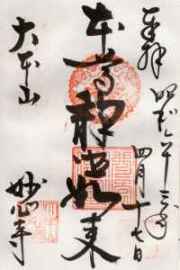 奉拝 昭和六十三年
四月十七日
本尊釋迦如来
大本山
妙心寺